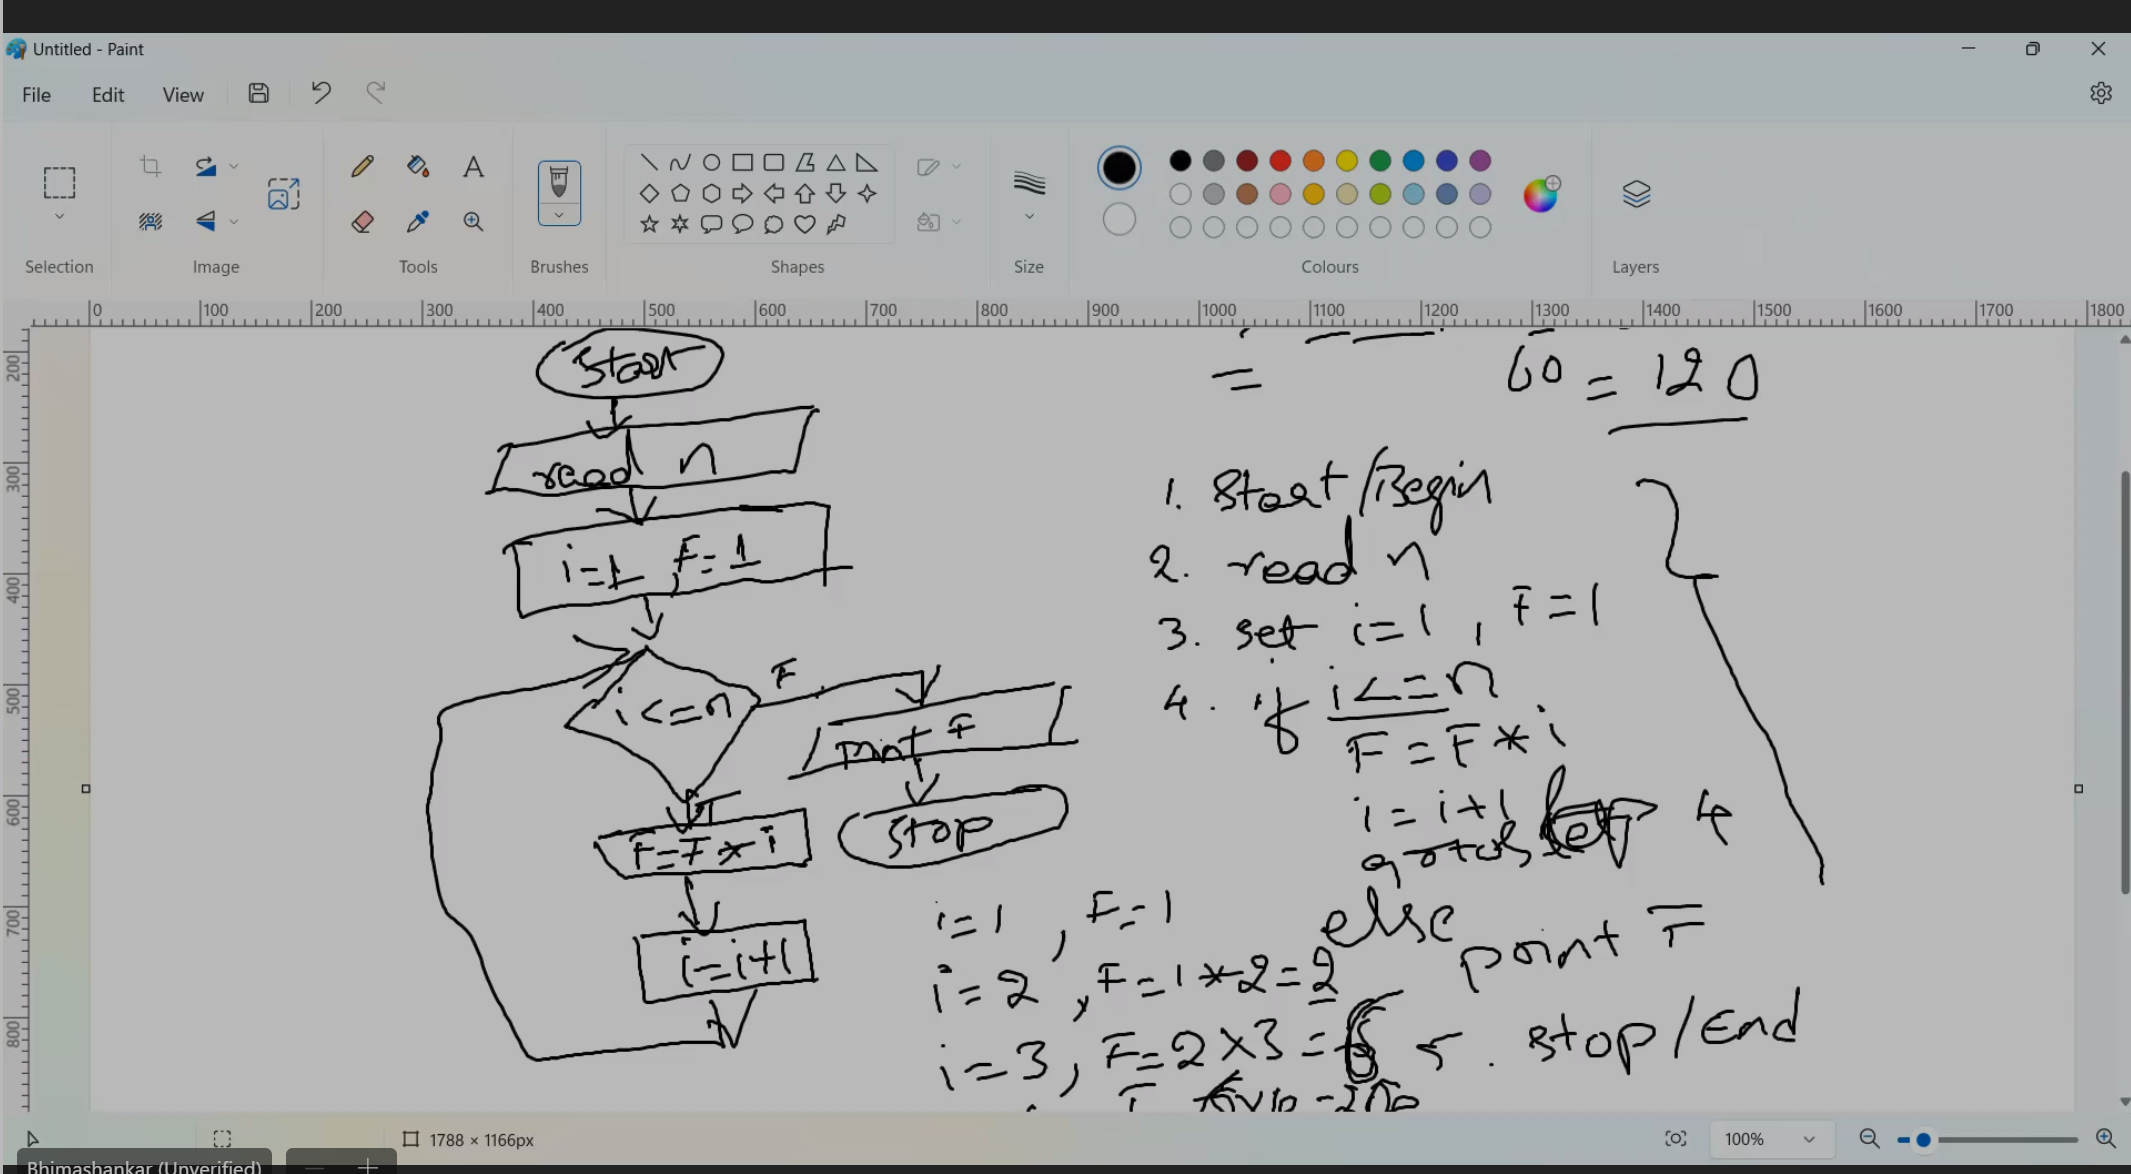 Untitled - Paint
File Edit View
Selection Image Tools Brushes Shapes Size Colours Layers
0 100 200 300 400 500 600 700 800 900 1000 1100 1200 1300 1400 1500 1600 1700 1800
200
300
400
500
600
700
800
start
read n
i=1, F=1
i<=n
F
print F
stop
T
F=F*i
i=i+1
=
60 = 120
1. Start/Begin
2. read n
3. set i=1, F=1
4. if i<=n
F=F*i
i=i+1
goto step 4
else
print F
5. stop/End
i=1, F=1
i=2, F=1*2=2
i=3, F=2×3=6
1788 × 1166px
100%
Bhimashankar (Unverified)